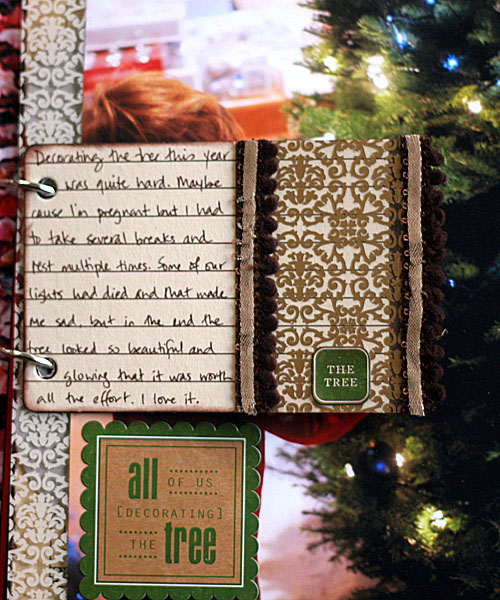 Decorating the tree this year
was quite hard. Maybe
cause I'm pregnant but I had
to take several breaks and
rest multiple times. Some of our
lights had died and that made
me sad, but in the end the
tree looked so beautiful and
glowing that it was worth
all the effort. I love it.
THE
TREE
all OF US
[DECORATING]
THE tree